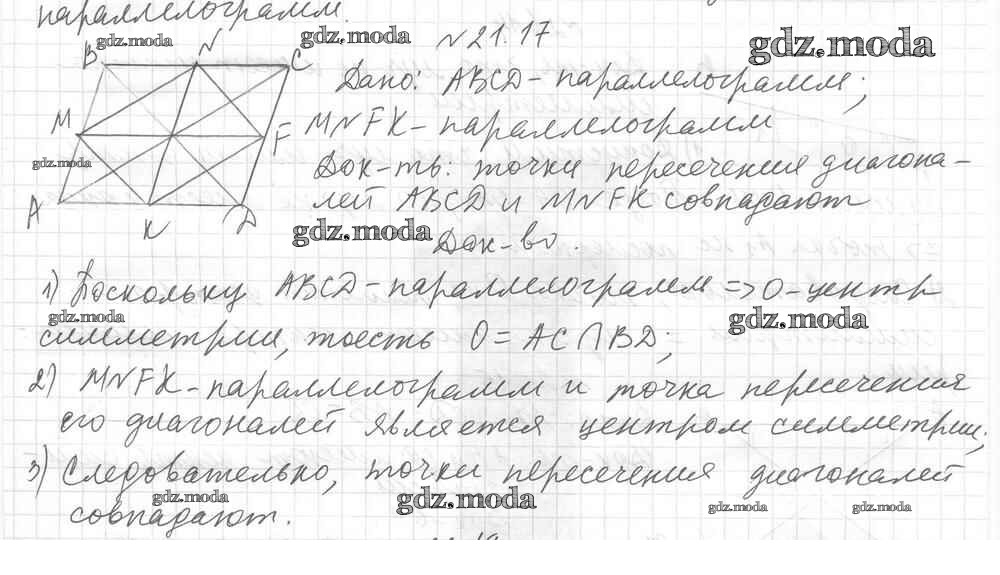 параллелограмм.
gdz.moda
gdz.moda
gdz.moda
№ 21.17
B N C
Дано: ABCD - параллелограмм;
M F
MNFK - параллелограмм
gdz.moda
Док-ть: точки пересечения диагона-
A K D
лей ABCD и MNFK совпадают
gdz.moda
Док-во:
1) Поскольку ABCD - параллелограмм => O - центр
gdz.moda
gdz.moda
симметрии, тоесть O = AC ∩ BD;
2) MNFK - параллелограмм и точка пересечения
его диагоналей является центром симметрии;
3) Следовательно, точки пересечения диагоналей
gdz.moda
gdz.moda
gdz.moda
gdz.moda
совпадают.